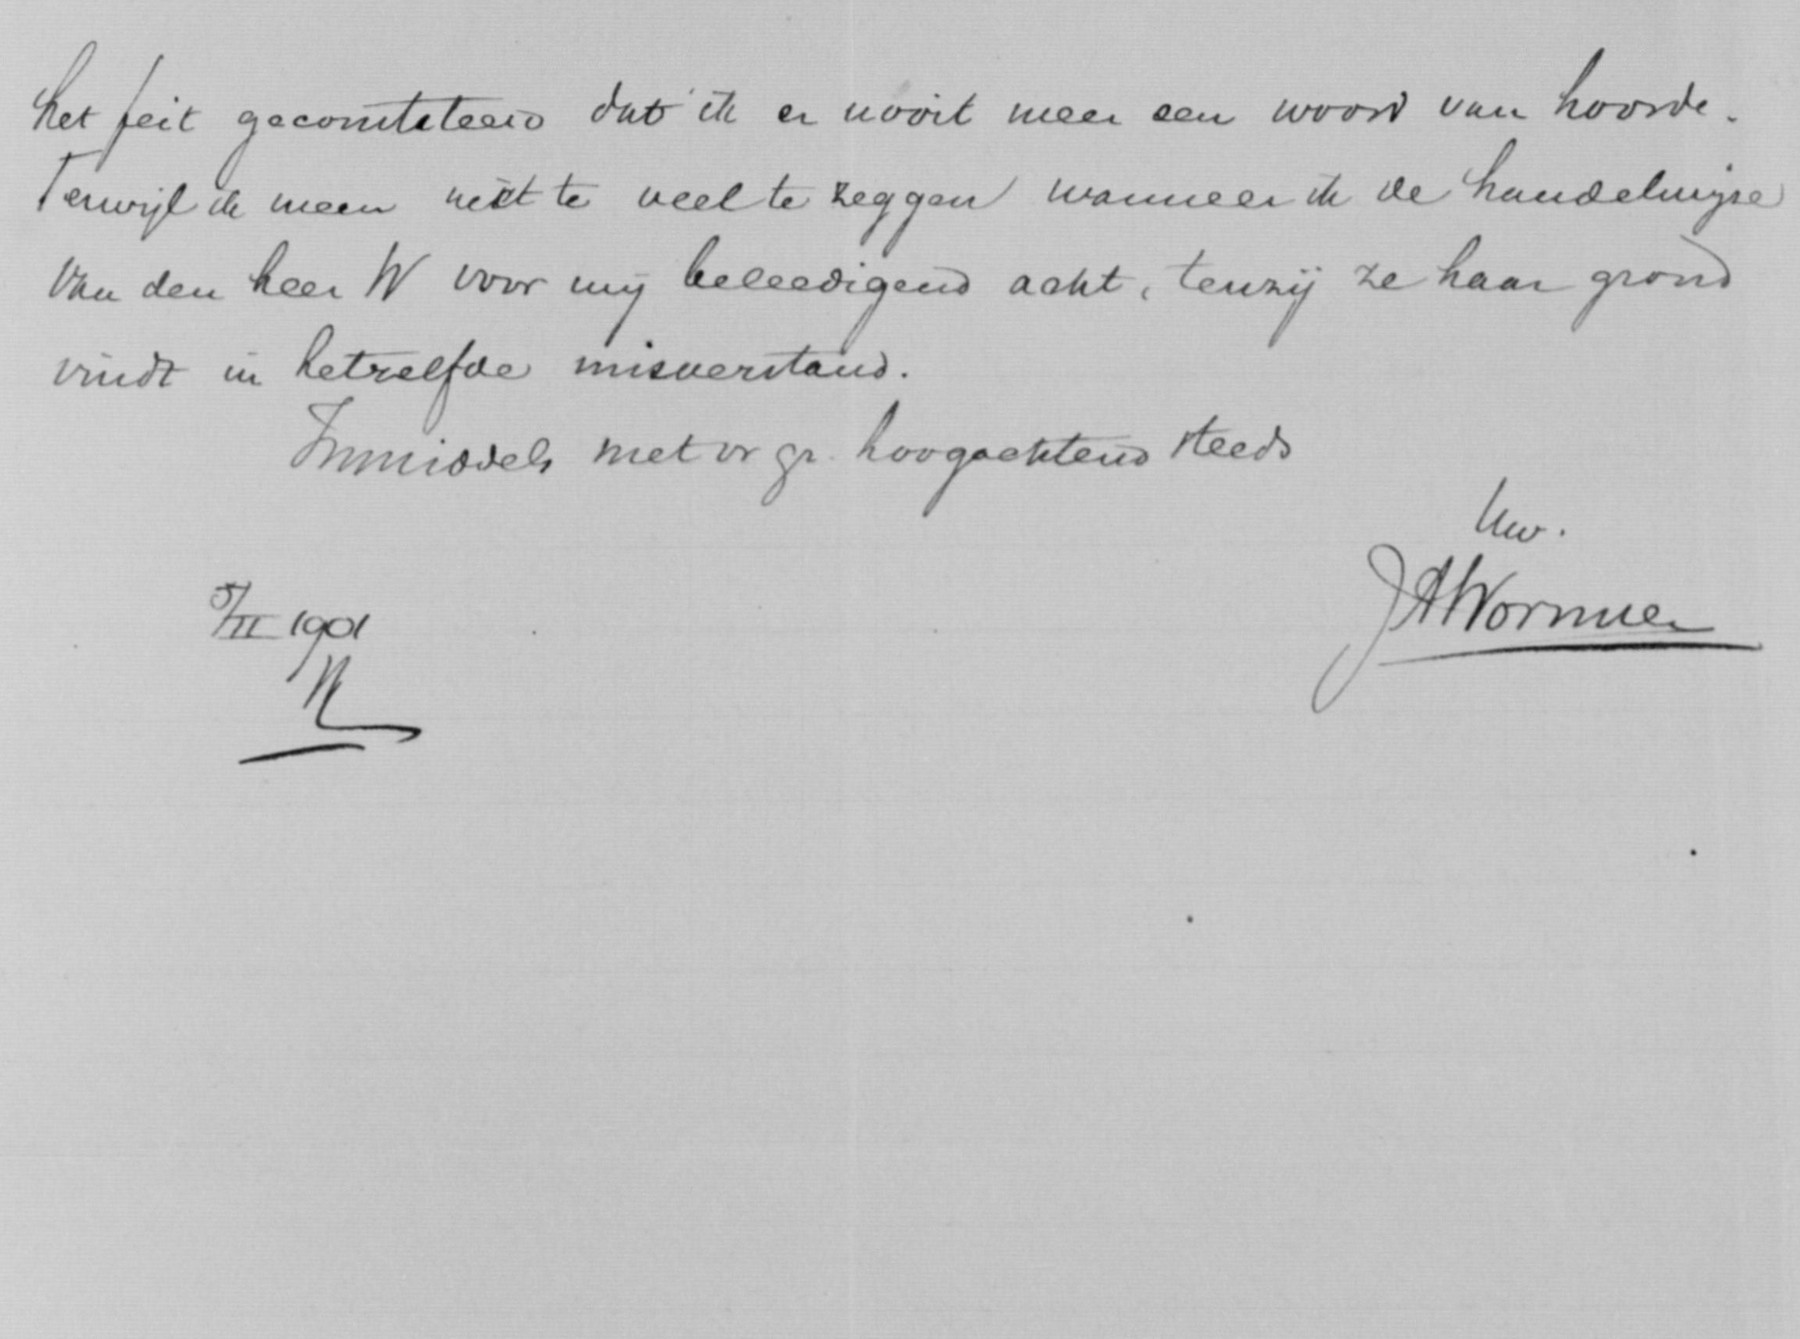 het feit geconstateerd dat ik er nooit meer een woord van hoorde.
Terwijl ik meen niet te veel te zeggen wanneer ik de handelwijze
van den heer W voor mij beleedigend acht, tenzij ze haar grond
vindt in hetzelfde misverstand.
Inmiddels met vr gr. hoogachtend steeds
Uw.
JAWormser
5/II 1901